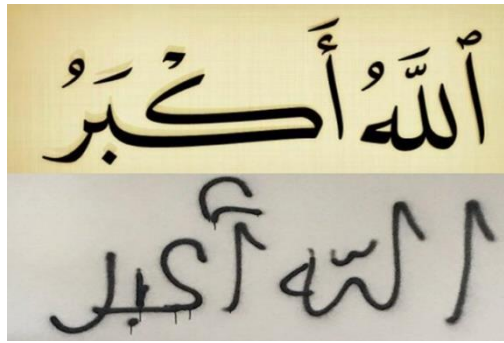 ٱللَّهُ أَكْبَرُ
اللّه أكبر